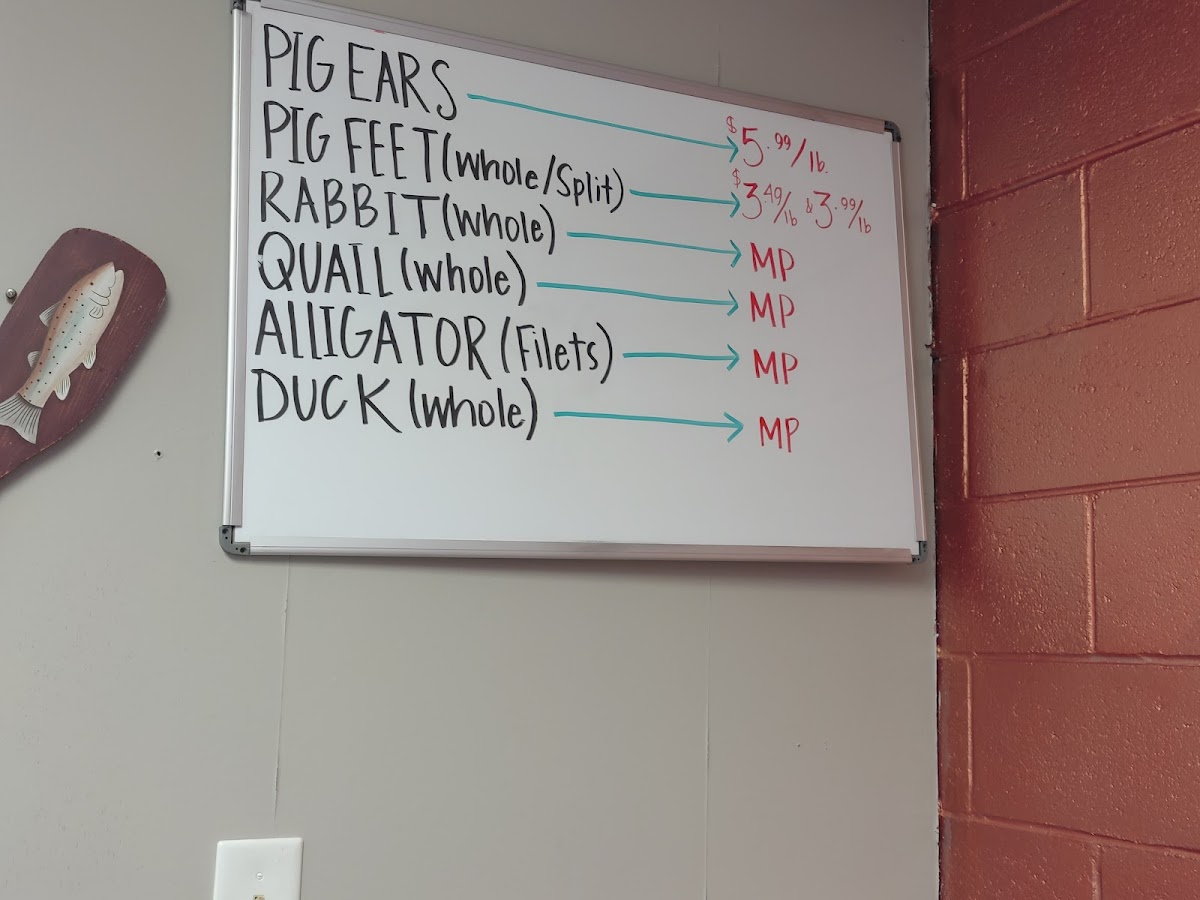 PIG EARS $5.99/lb.
PIG FEET (whole/Split) $3.49/lb & 3.99/lb
RABBIT (whole) MP
QUAIL (whole) MP
ALLIGATOR (Filets) MP
DUCK (whole) MP